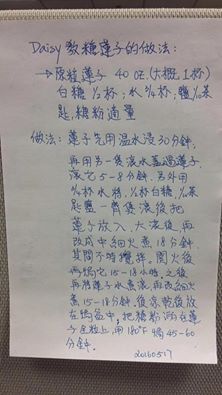 Daisy教糖蓮子的做法：
→原粒蓮子 40 OZ.(大概1杯)
白糖½杯；水¾杯；鹽⅛茶
匙，糖粉適量
做法：蓮子先用溫水浸30分鐘，
再用另一煲滾水蓋過蓮子
滾它5-8分鐘。另外用
¾杯水將½杯白糖，⅛茶
匙鹽一齊煲滾後把
蓮子放入，大滾後，再
改成中細火煮18分鐘，
其間不時攪拌。關火後
再焗它15-18小時。之後
再將蓮子水煮滾，再改細火
煮15-18分鐘。後涼乾後放
在焗盆中，把糖粉洒在蓮
子全粒上，用180°F 焗45-60
分鐘。
20160517